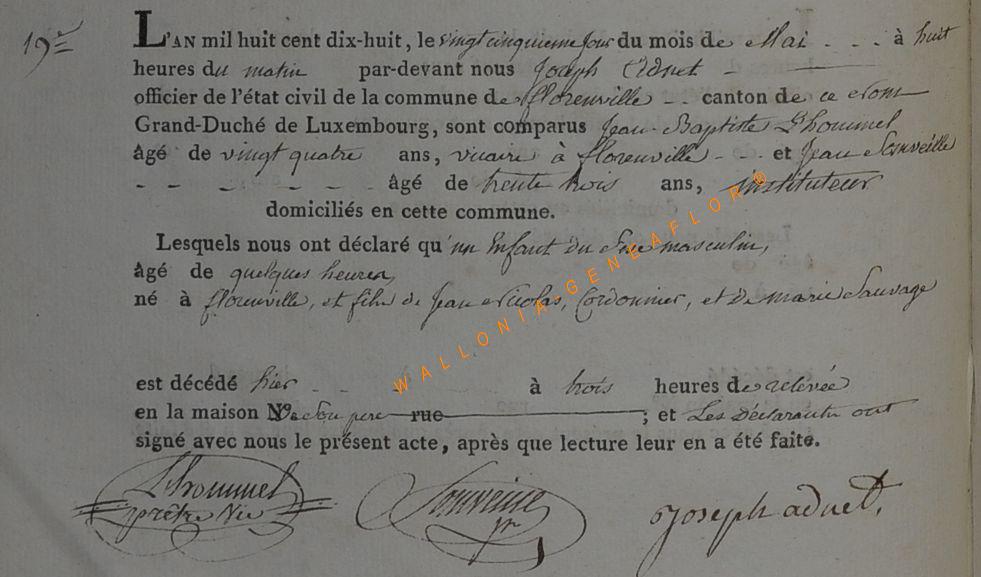 19e
L'AN mil huit cent dix-huit, le vingtcinquieme jour du mois de Mai - - - à huit
heures du matin par-devant nous Joseph Adnet -
officier de l'état civil de la commune de florenville - - canton de ce nom
Grand-Duché de Luxembourg, sont comparus Jean-Baptiste Lhommel
âgé de vingt quatre ans, vicaire à florenville - - et Jean
- - - - - - âgé de trente trois ans, instituteur
domiciliés en cette commune.
Lesquels nous ont déclaré qu'un Enfant du Sexe masculin,
âgé de quelques heures,
né à florenville, et fils de Jean Nicolas, Cordonnier, et de marie Sauvage
est décédé hier - - à trois heures de relevée
en la maison No de Son pere rue ; et Les Déclarants ont
signé avec nous le présent acte, après que lecture leur en a été faite.
Lhommel
prêtre Vic
Joseph adnet.
WALLONIA-GENEAFLOR®